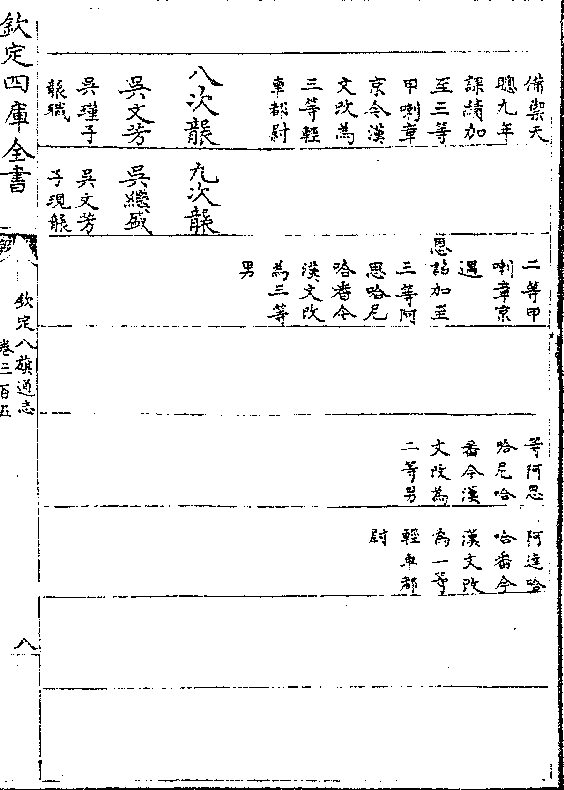 備禦天
聰九年
課績加
至三等
甲喇章
京今漢
文改為
三等輕
車都尉
八次襲
吳文芳
吳瑾子
襲職
九次襲
吳繼盛
吳文芳
子現襲
二等甲
喇章京
遇
恩詔加至
三等阿
思哈尼
哈番今
漢文改
為三等
男
等阿思
哈尼哈
番今漢
文改為
二等男
阿達哈
哈番今
漢文改
為一等
輕車都
尉
欽定四庫全書
欽定八旗通志
卷三百五
八